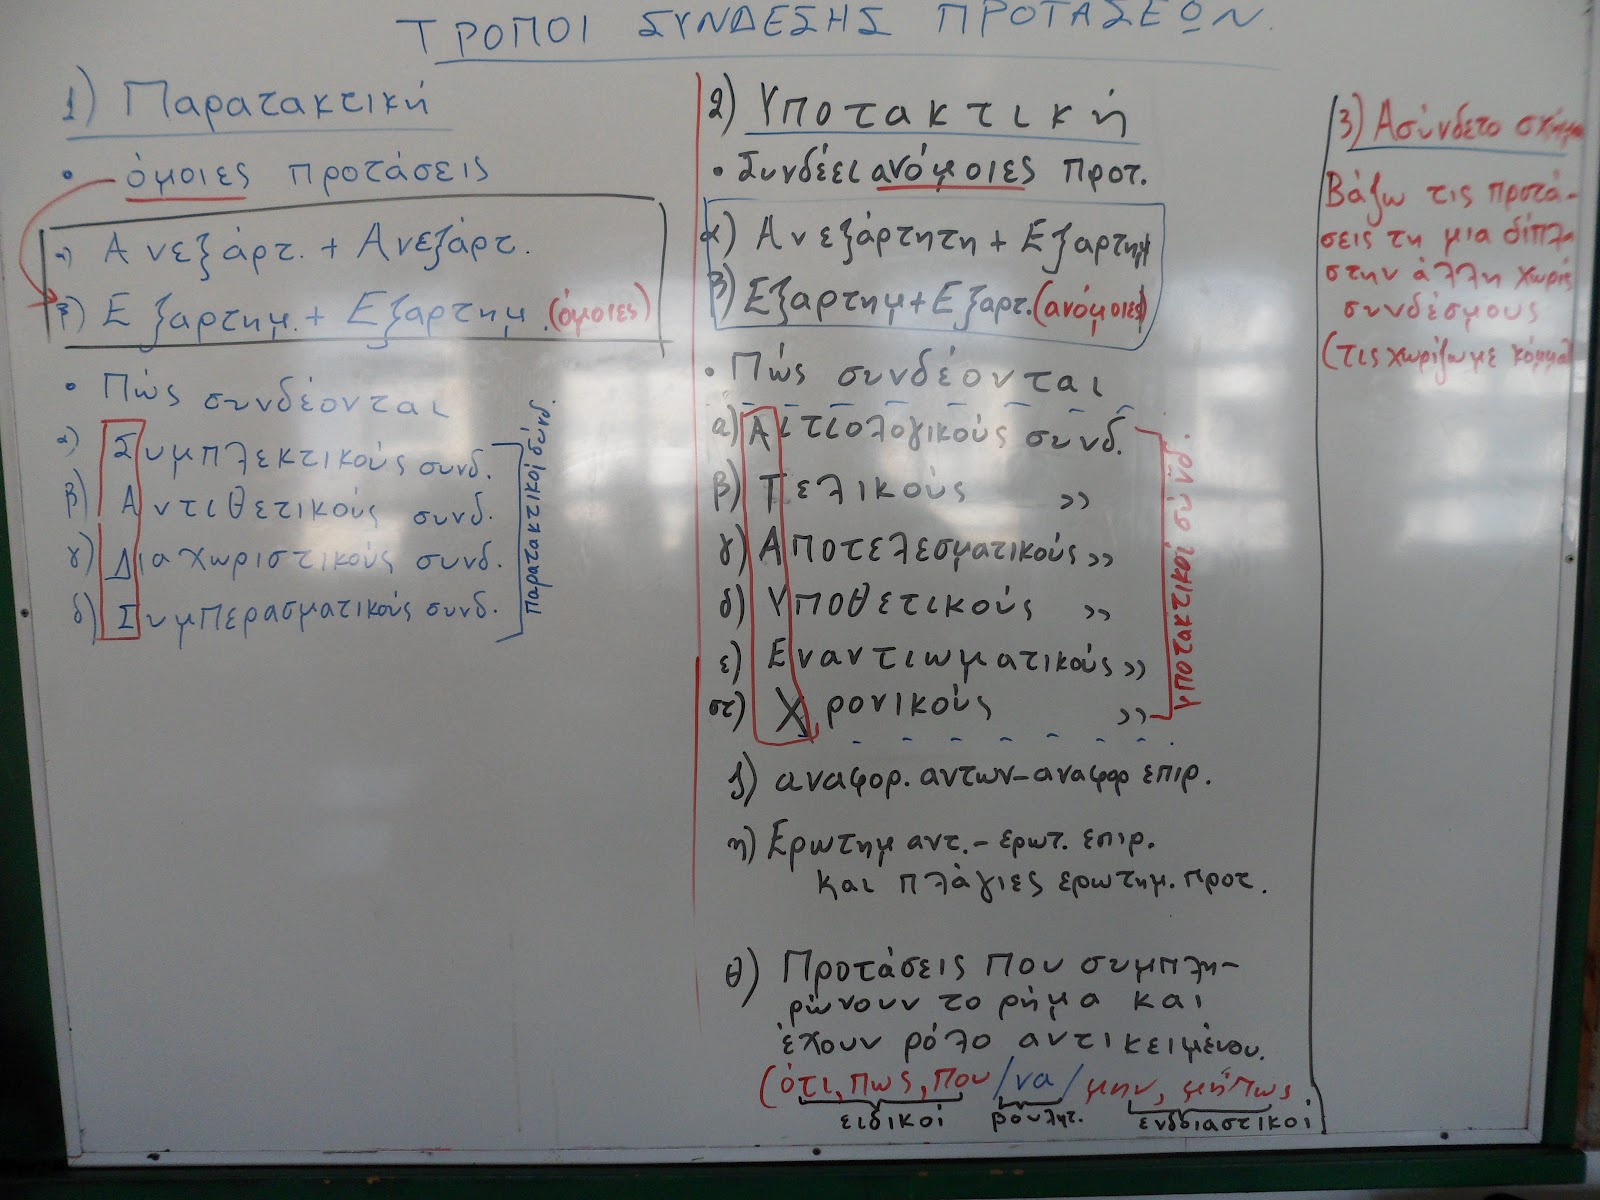 ΤΡΟΠΟΙ ΣΥΝΔΕΣΗΣ ΠΡΟΤΑΣΕΩΝ.
1) Παρατακτική
• όμοιες προτάσεις
α) Ανεξάρτ. + Ανεξάρτ.
β) Εξαρτημ. + Εξαρτημ. (όμοιες)
• Πώς συνδέονται
α) Συμπλεκτικούς συνδ.
β) Αντιθετικούς συνδ.
γ) Διαχωριστικούς συνδ.
δ) Συμπερασματικούς συνδ.
Παρατακτικοί σύνδ.
2) Υποτακτική
• Συνδέει ανόμοιες προτ.
α) Ανεξάρτητη + Εξαρτημ
β) Εξαρτημ + Εξαρτ. (ανόμοιες)
• Πώς συνδέονται
α) Αιτιολογικούς συνδ.
β) Τελικούς >>
γ) Αποτελεσματικούς >>
δ) Υποθετικούς >>
ε) Εναντιωματικούς >>
στ) Χρονικούς >>
υποτακτικοί συνδ.
ζ) αναφορ. αντων-αναφορ επιρ.
η) Ερωτημ αντ. - ερωτ. επιρ.
και πλάγιες ερωτημ. προτ.
θ) Προτάσεις που συμπλη-
ρώνουν το ρήμα και
έχουν ρόλο αντικειμένου.
(ότι, πως, που /να/ μην, μήπως
ειδικοί βουλητ. ενδοιαστικοί
3) Ασύνδετο σχήμα
Βάζω τις προτά-
σεις τη μια δίπλα
στην άλλη χωρίς
συνδέσμους
(τις χωρίζω με κόμμα)